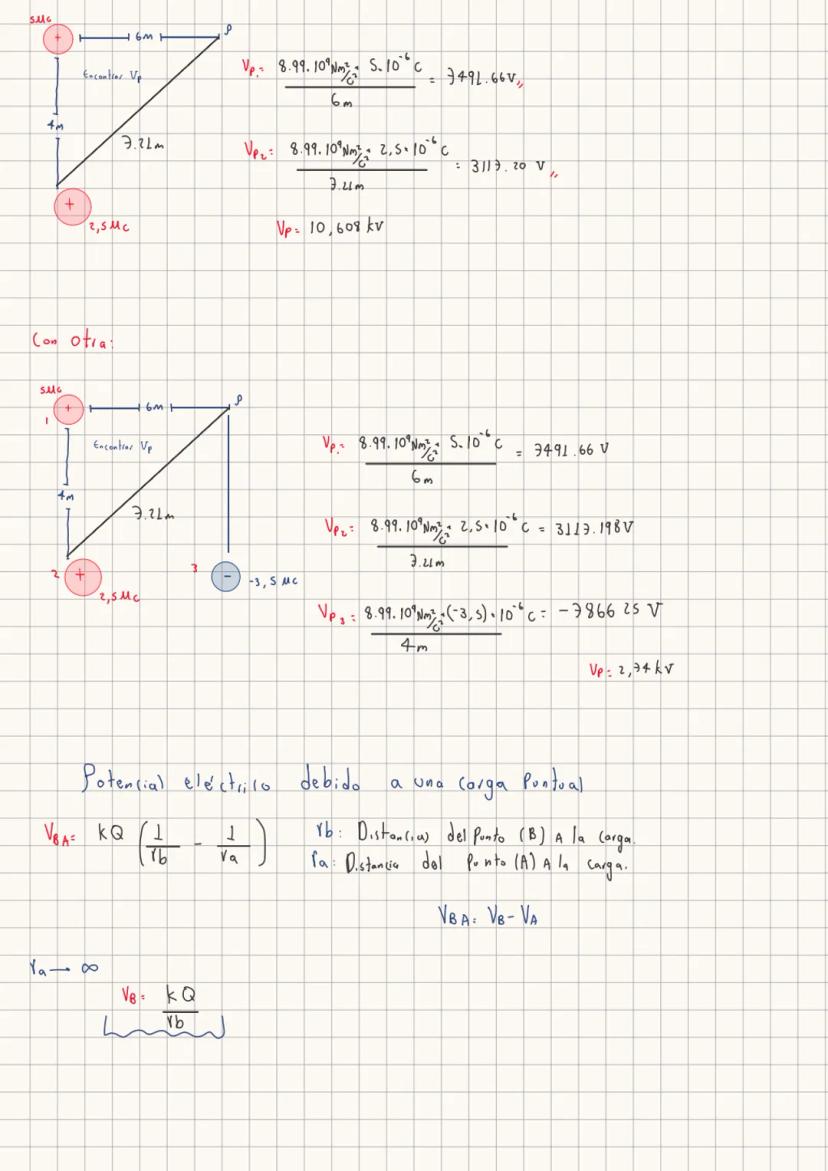 5Mc
+ 6m P
Encontrar Vp
4m
7.21m
+
2,5Mc
Vp₁= 8.99.10⁹Nm²/c² * 5.10⁻⁶ C
6m
= 7491.66V,,
Vp₂= 8.99.10⁹Nm²/c² * 2,5*10⁻⁶ C
7.21m
= 3117.20 V,,
Vp= 10,608 kV
Con otra:
5Mc
1 + 6m P
Encontrar Vp
4m
7.21m
2 +
2,5Mc
3 - -3,5 Mc
Vp₁= 8.99.10⁹Nm²/c² * 5.10⁻⁶ C = 7491.66 V
6m
Vp₂= 8.99.10⁹Nm²/c² * 2,5*10⁻⁶ C = 3117.198V
7.21m
Vp₃= 8.99.10⁹Nm²/c² *(-3,5)*10⁻⁶ C = -7866 25 V
4m
Vp= 2,74 kV
Potencial eléctrico debido a una carga Puntual
V_BA= kQ (1/rb - 1/ra)
rb: Distancias del punto (B) A la carga.
ra: Distancia del punto (A) A la carga.
V_BA= V_B-V_A
ra → ∞
V_B= kQ
rb